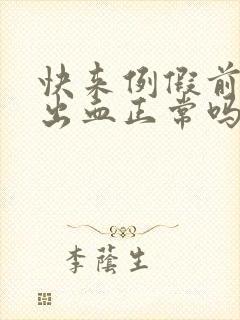 快来例假前
出血正常吗
李荫生